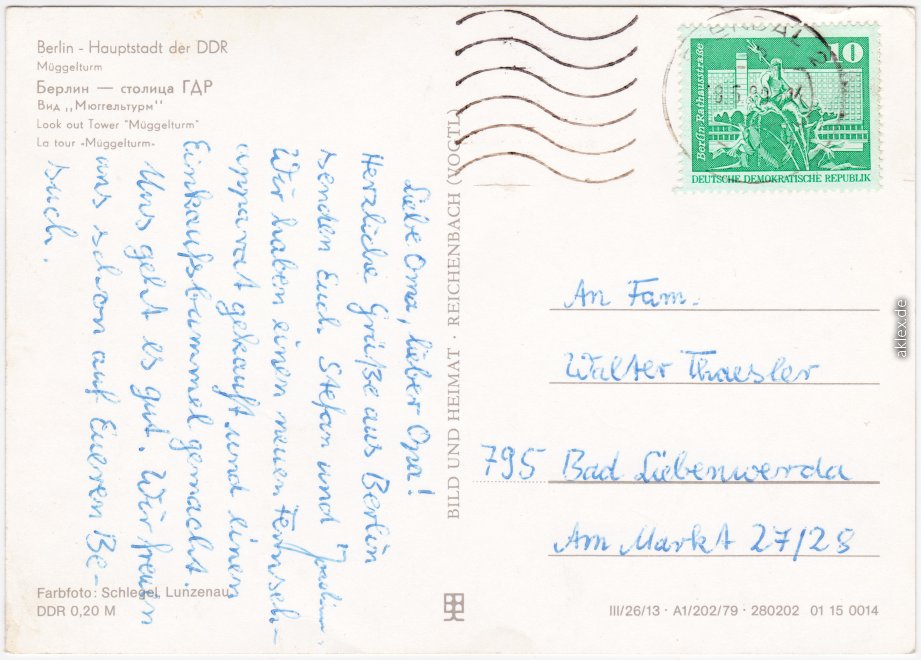 Berlin - Hauptstadt der DDR
Müggelturm
Берлин — столица ГДР
Вид „Мюггельтурм"
Look out Tower "Müggelturm"
La tour -Müggelturm-
Liebe Oma, lieber Opa!
Herzliche Grüße aus Berlin
senden Euch Stefan und
Wir haben einen neuen Fernseh-
apparat gekauft und einen
Einkaufsbummel gemacht.
Uns geht es gut. Wir freuen
uns schon auf Eueren Be-
such.
Farbfoto: Schlegel, Lunzenau
DDR 0,20 M
BILD UND HEIMAT · REICHENBACH (VOGTL)
Berlin Rathausstraße
10
DEUTSCHE DEMOKRATISCHE REPUBLIK
An Fam.
Walter Thaesler
795 Bad Liebenwerda
Am Markt 27/28
III/26/13 · A1/202/79 · 280202 01 15 0014
aklex.de